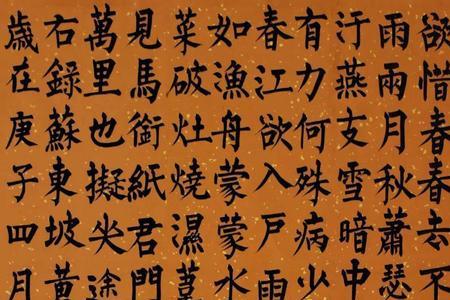 欲惜春春去不
雨雨月秋蕭瑟
汙燕支雪暗中
有力何殊病少
春江欲入戶雨
如漁舟蒙蒙水
菜破灶燒濕
見馬銜紙君門
萬里也擬哭途
右錄蘇東坡黃
歲在庚子四月